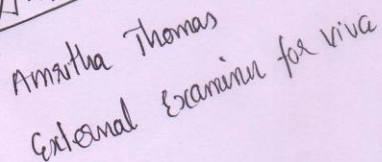 Amrutha Thomas
External Examiner for viva